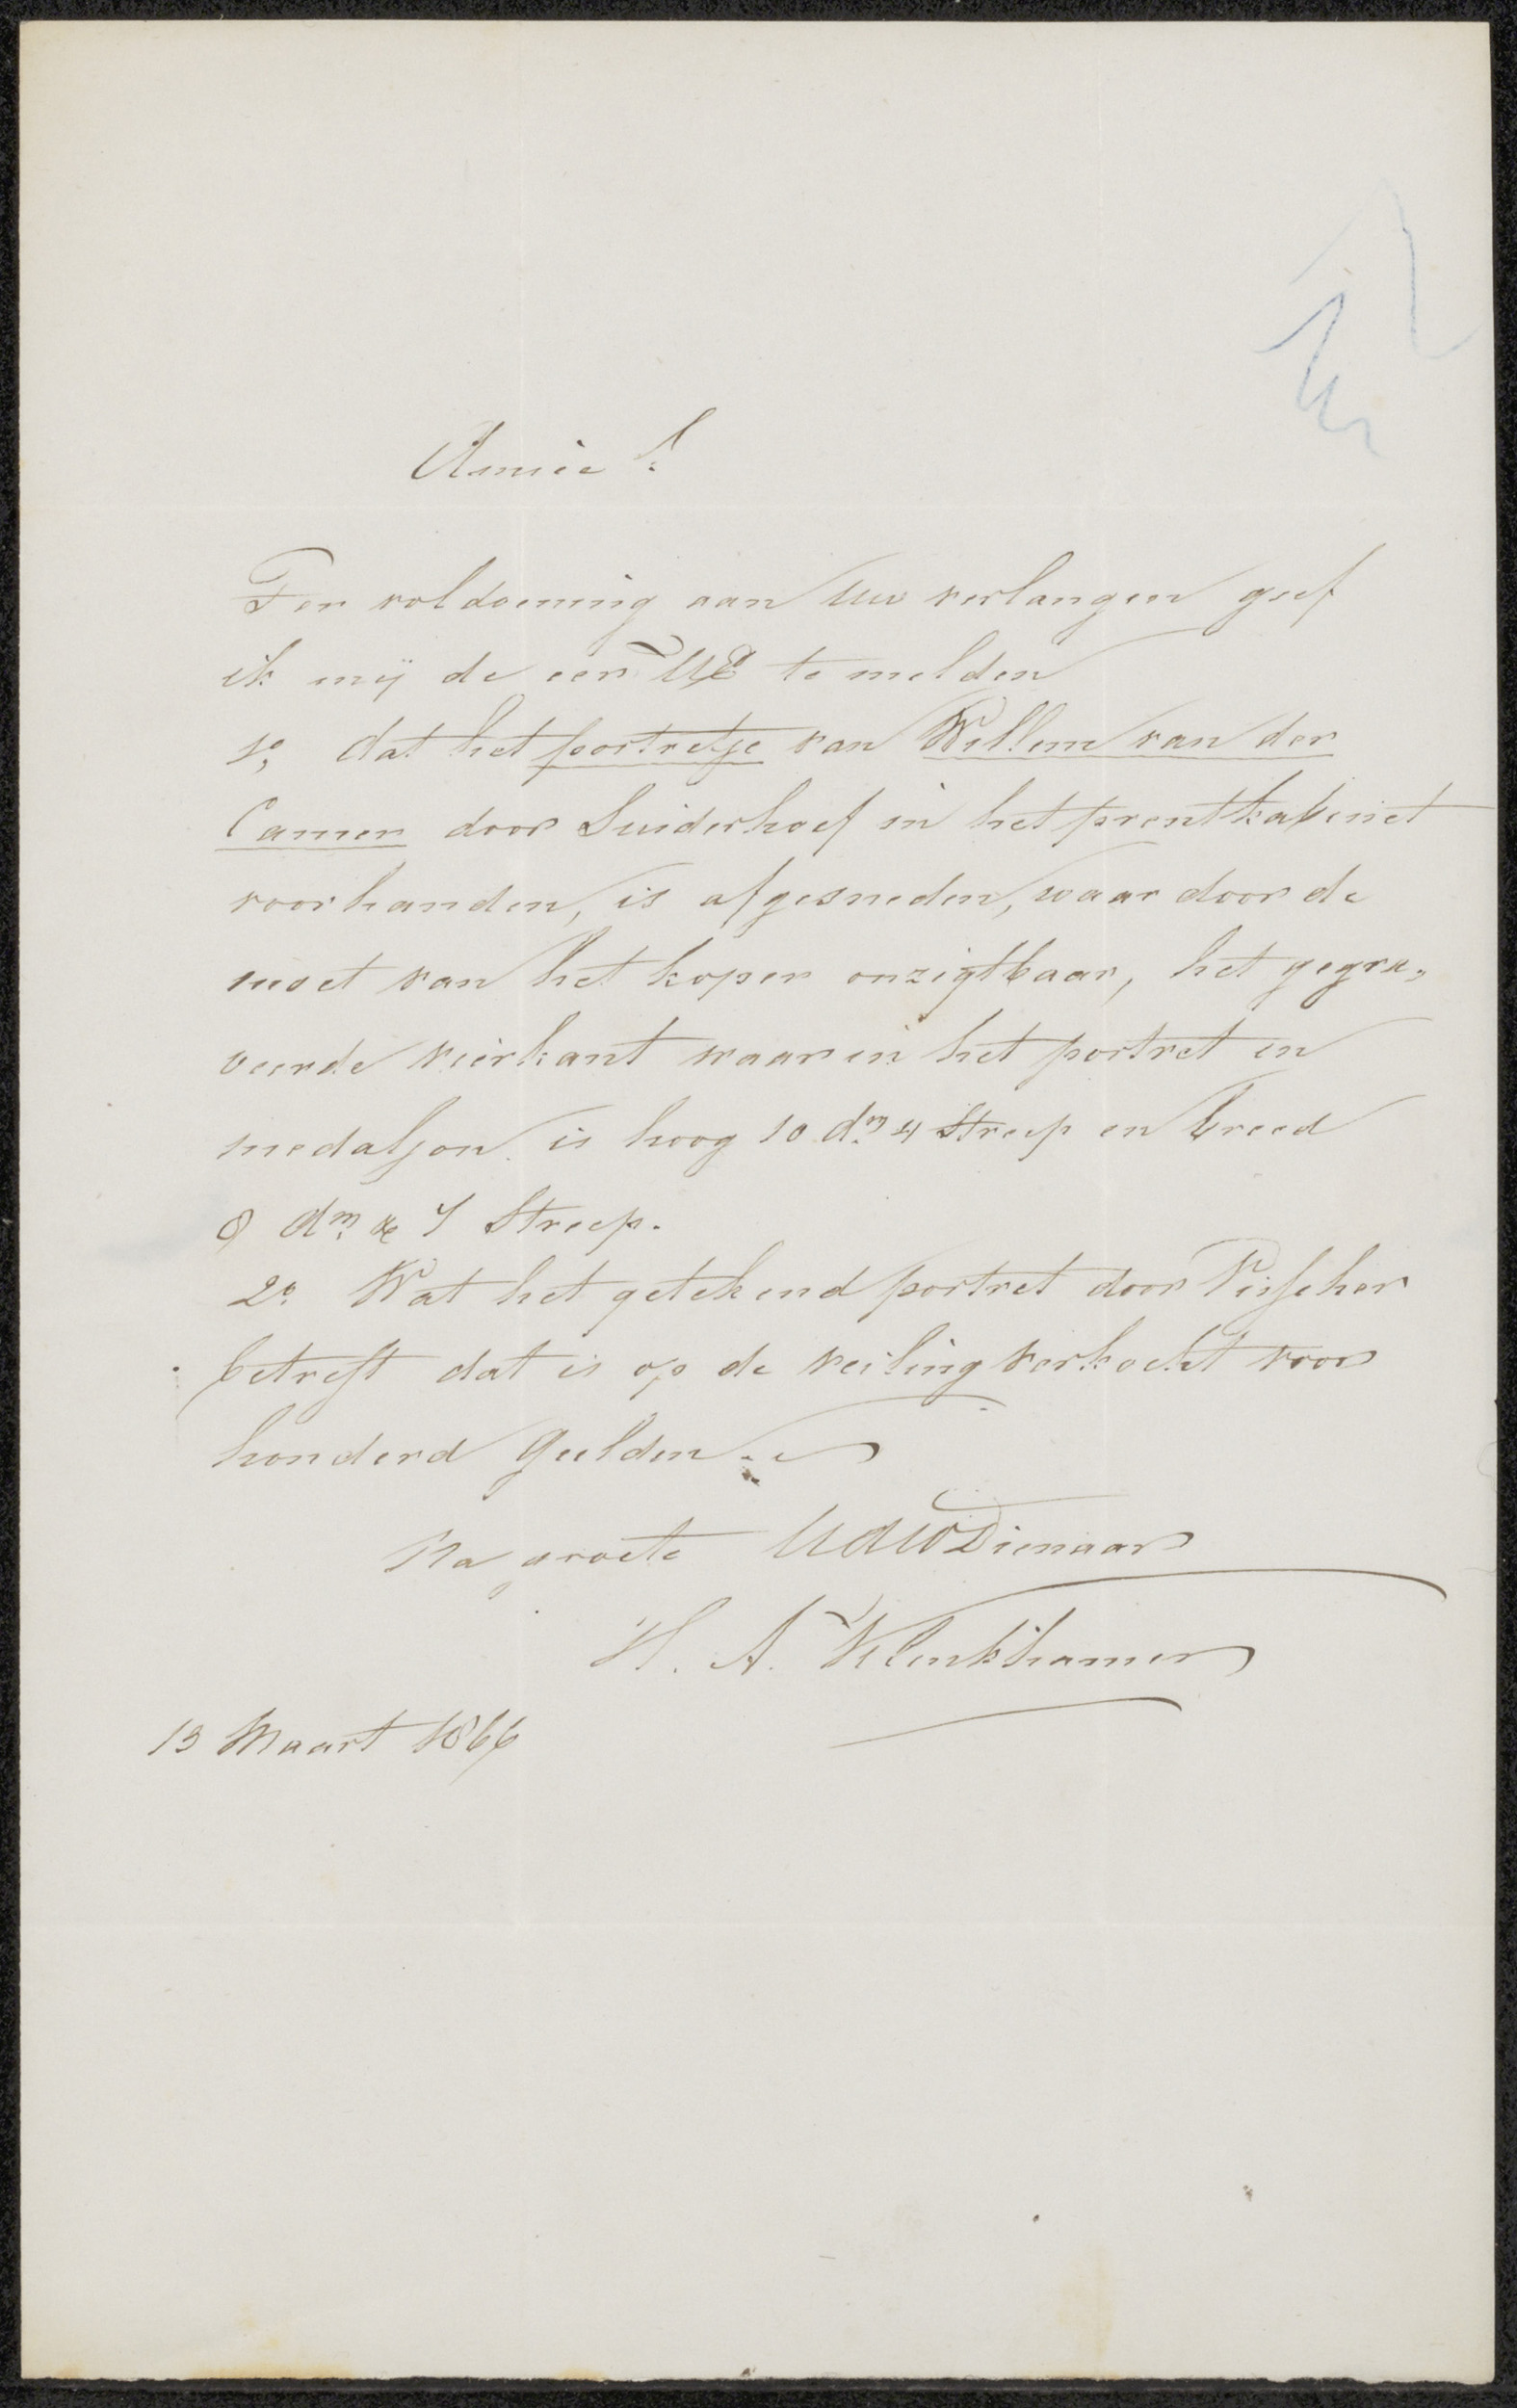 Amice!
Ter voldoening aan Uw verlangen geef
ik mij de eer UE te melden
1o, dat het portretje van Willem van der
Camer door Suiderhoef in het prentkabinet
voorhanden, is afgesneden, waar door de
moet van het koper onzigtbaar, het gegra„
veerde vierkant waar in het portret in
medaljon is hoog 10 dm 4 Streep en breed
8 dm & 7 Streep.
2o. Wat het getekend portret door Visscher
betreft dat is op de veiling verkocht voor
honderd Gulden.
Na groete UdWDienaar
H. A. Klinkhamer
13 Maart 1866